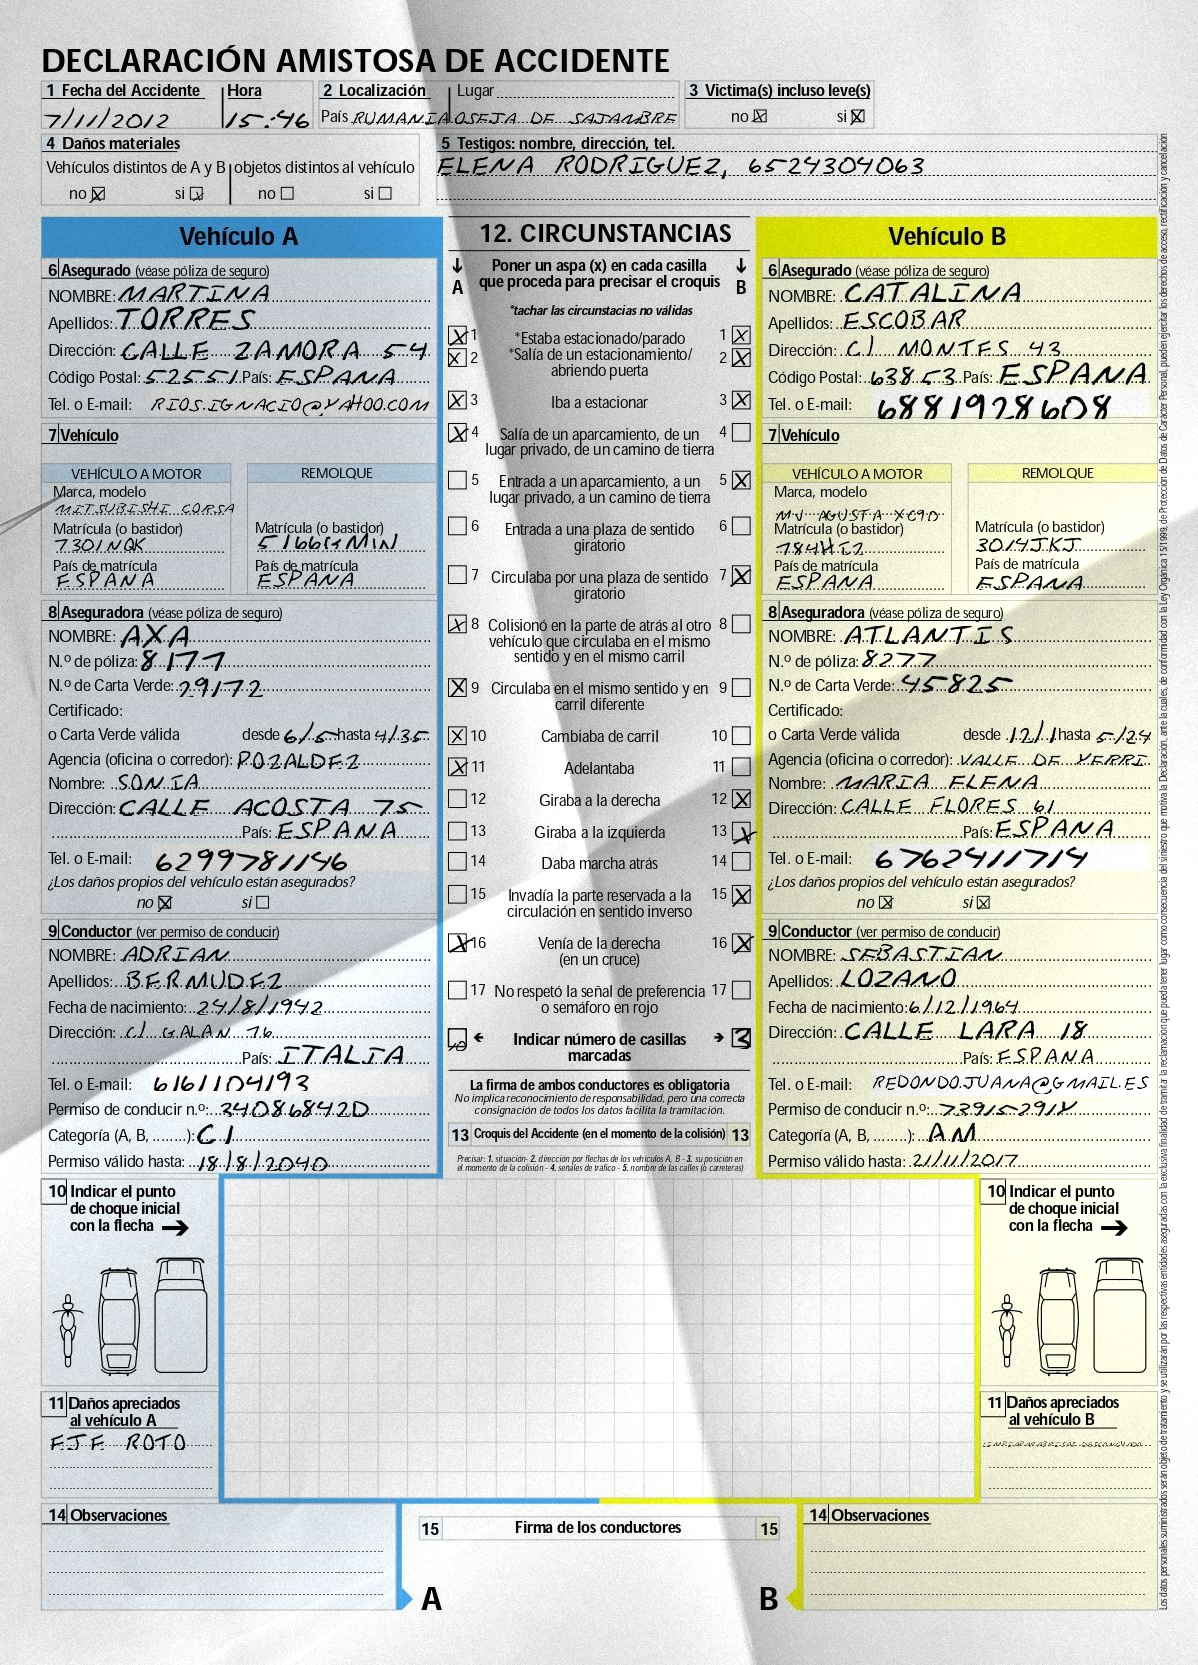 DECLARACIÓN AMISTOSA DE ACCIDENTE
1 Fecha del Accidente Hora 2 Localización Lugar 3 Victima(s) incluso leve(s)
7/11/2012 15:46 País RUMANIA OSEJA DE SAJAMBRE no si
4 Daños materiales
Vehículos distintos de A y B objetos distintos al vehículo
no si no si
5 Testigos: nombre, dirección, tel.
ELENA RODRIGUEZ, 6524304063
Vehículo A
6 Asegurado (véase póliza de seguro)
NOMBRE: MARTINA
Apellidos: TORRES
Dirección: CALLE ZAMORA 54
Código Postal: 52551 País: ESPANA
Tel. o E-mail: RIOS.IGNACIO@YAHOO.COM
7 Vehículo
VEHÍCULO A MOTOR REMOLQUE
Marca, modelo
MITSUBISHI CORSA
Matrícula (o bastidor) Matrícula (o bastidor)
7301NQK 5166GMIN
País de matrícula País de matrícula
ESPANA ESPANA
8 Aseguradora (véase póliza de seguro)
NOMBRE: AXA
N.º de póliza: 8177
N.º de Carta Verde: 29172
Certificado:
o Carta Verde válida desde 6/5 hasta 4/35
Agencia (oficina o corredor): POZALDEZ
Nombre: SONIA
Dirección: CALLE ACOSTA 75
País: ESPANA
Tel. o E-mail: 6299781146
¿Los daños propios del vehículo están asegurados?
no si
9 Conductor (ver permiso de conducir)
NOMBRE: ADRIAN
Apellidos: BERMUDEZ
Fecha de nacimiento: 24/8/1942
Dirección: C/ GALAN 76
País: ITALIA
Tel. o E-mail: 6161104193
Permiso de conducir n.º: 34086842D
Categoría (A, B, ........): C1
Permiso válido hasta: 18/8/2040
12. CIRCUNSTANCIAS
A Poner un aspa (x) en cada casilla que proceda para precisar el croquis B
*tachar las circunstacias no válidas
1 *Estaba estacionado/parado 1
2 *Salía de un estacionamiento/ 2
abriendo puerta
3 Iba a estacionar 3
4 Salía de un aparcamiento, de un 4
lugar privado, de un camino de tierra
5 Entrada a un aparcamiento, a un 5
lugar privado, a un camino de tierra
6 Entrada a una plaza de sentido 6
giratorio
7 Circulaba por una plaza de sentido 7
giratorio
8 Colisionó en la parte de atrás al otro 8
vehículo que circulaba en el mismo
sentido y en el mismo carril
9 Circulaba en el mismo sentido y en 9
carril diferente
10 Cambiaba de carril 10
11 Adelantaba 11
12 Giraba a la derecha 12
13 Giraba a la izquierda 13
14 Daba marcha atrás 14
15 Invadía la parte reservada a la 15
circulación en sentido inverso
16 Venía de la derecha 16
(en un cruce)
17 No respetó la señal de preferencia 17
o semáforo en rojo
Indicar número de casillas 3
marcadas
La firma de ambos conductores es obligatoria
No implica reconocimiento de responsabilidad, pero una correcta
consignación de todos los datos facilita la tramitación.
13 Croquis del Accidente (en el momento de la colisión) 13
Precisar: 1. situación- 2. dirección por flechas de los vehículos A, B - 3. su posición en
al momento de la colisión - 4. señales de tráfico - 5. nombre de las calles (o carreteras)
Vehículo B
6 Asegurado (véase póliza de seguro)
NOMBRE: CATALINA
Apellidos: ESCOBAR
Dirección: C/ MONTES 43
Código Postal: 63853 País: ESPANA
Tel. o E-mail: 6881928608
7 Vehículo
VEHÍCULO A MOTOR REMOLQUE
Marca, modelo
MV AGUSTA XC90
Matrícula (o bastidor) Matrícula (o bastidor)
784HIZ 3014JKJ
País de matrícula País de matrícula
ESPANA ESPANA
8 Aseguradora (véase póliza de seguro)
NOMBRE: ATLANTIS
N.º de póliza: 8277
N.º de Carta Verde: 45825
Certificado:
o Carta Verde válida desde 12/1 hasta 5/24
Agencia (oficina o corredor): VALLE DE YERRI
Nombre: MARIA ELENA
Dirección: CALLE FLORES 61
País: ESPANA
Tel. o E-mail: 6762411714
¿Los daños propios del vehículo están asegurados?
no si
9 Conductor (ver permiso de conducir)
NOMBRE: SEBASTIAN
Apellidos: LOZANO
Fecha de nacimiento: 6/12/1964
Dirección: CALLE LARA 18
País: ESPANA
Tel. o E-mail: REDONDOJUANA@GMAIL.ES
Permiso de conducir n.º: 73915291X
Categoría (A, B, ........): AM
Permiso válido hasta: 21/11/2017
10 Indicar el punto
de choque inicial
con la flecha
11 Daños apreciados
al vehículo A
EJE ROTO
10 Indicar el punto
de choque inicial
con la flecha
11 Daños apreciados
al vehículo B
LIMPIAPARABRISAS DESCONCHADO
14 Observaciones
15 Firma de los conductores 15
A B
14 Observaciones